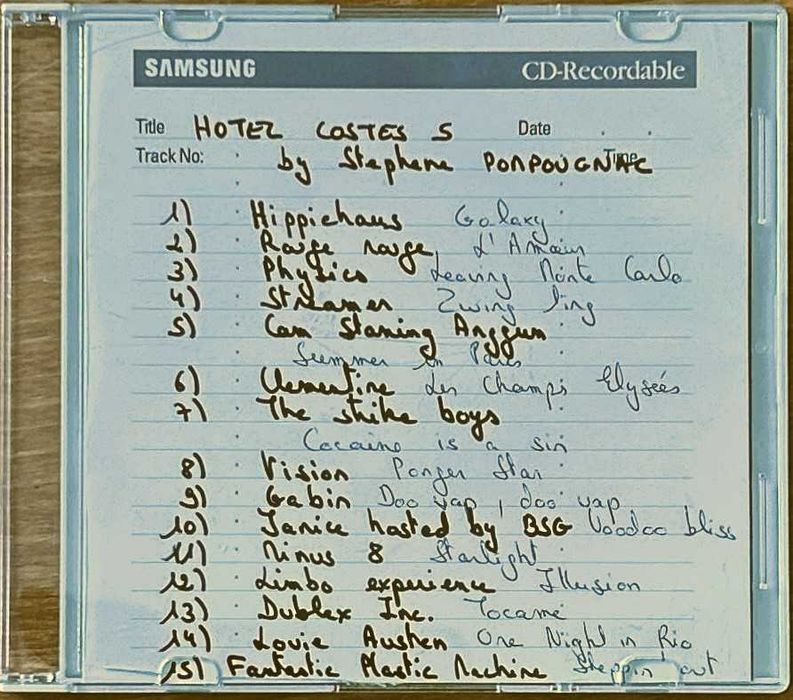 SAMSUNG CD-Recordable
Title HOTEL COSTES 5 Date
Track No: by Stephane POMPOUGNAC Time
1) Hippiehaus Galaxy
2) Rouge rouge L'Amour
3) Physics Leaving Monte Carlo
4) Streamer Zwing Ling
5) Cam Staning Anggun
Summer in Paris
6) Clementine Les Champs Elysées
7) The strike boys
Cocaine is a sin
8) Vision Ponger Star
9) Gabin Doo uap, doo uap
10) Janice hosted by BSG Voodoo bliss
11) Minus 8 Starlight
12) Limbo experience Illusion
13) Dublex Inc. Tocame
14) Louie Austen One Night in Rio
15) Fantastic Plastic Machine Steppin' out